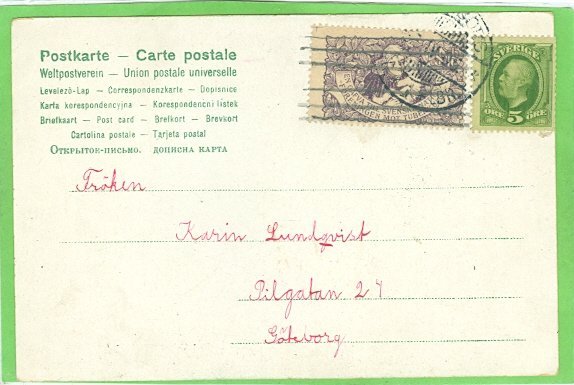 Postkarte — Carte postale
Weltpostverein — Union postale universelle
Levelező-Lap — Correspondenzkarte — Dopisnice
Karta korespondencyjna — Korespondenčni listek
Briefkaart — Post card — Brefkort — Brevkort
Cartolina postale — Tarjeta postal
Открытое-письмо. дописна карта
SVERIGE
ÖRE 5 ÖRE
Fröken
Karin Lundqvist
Pilgatan 27
Göteborg